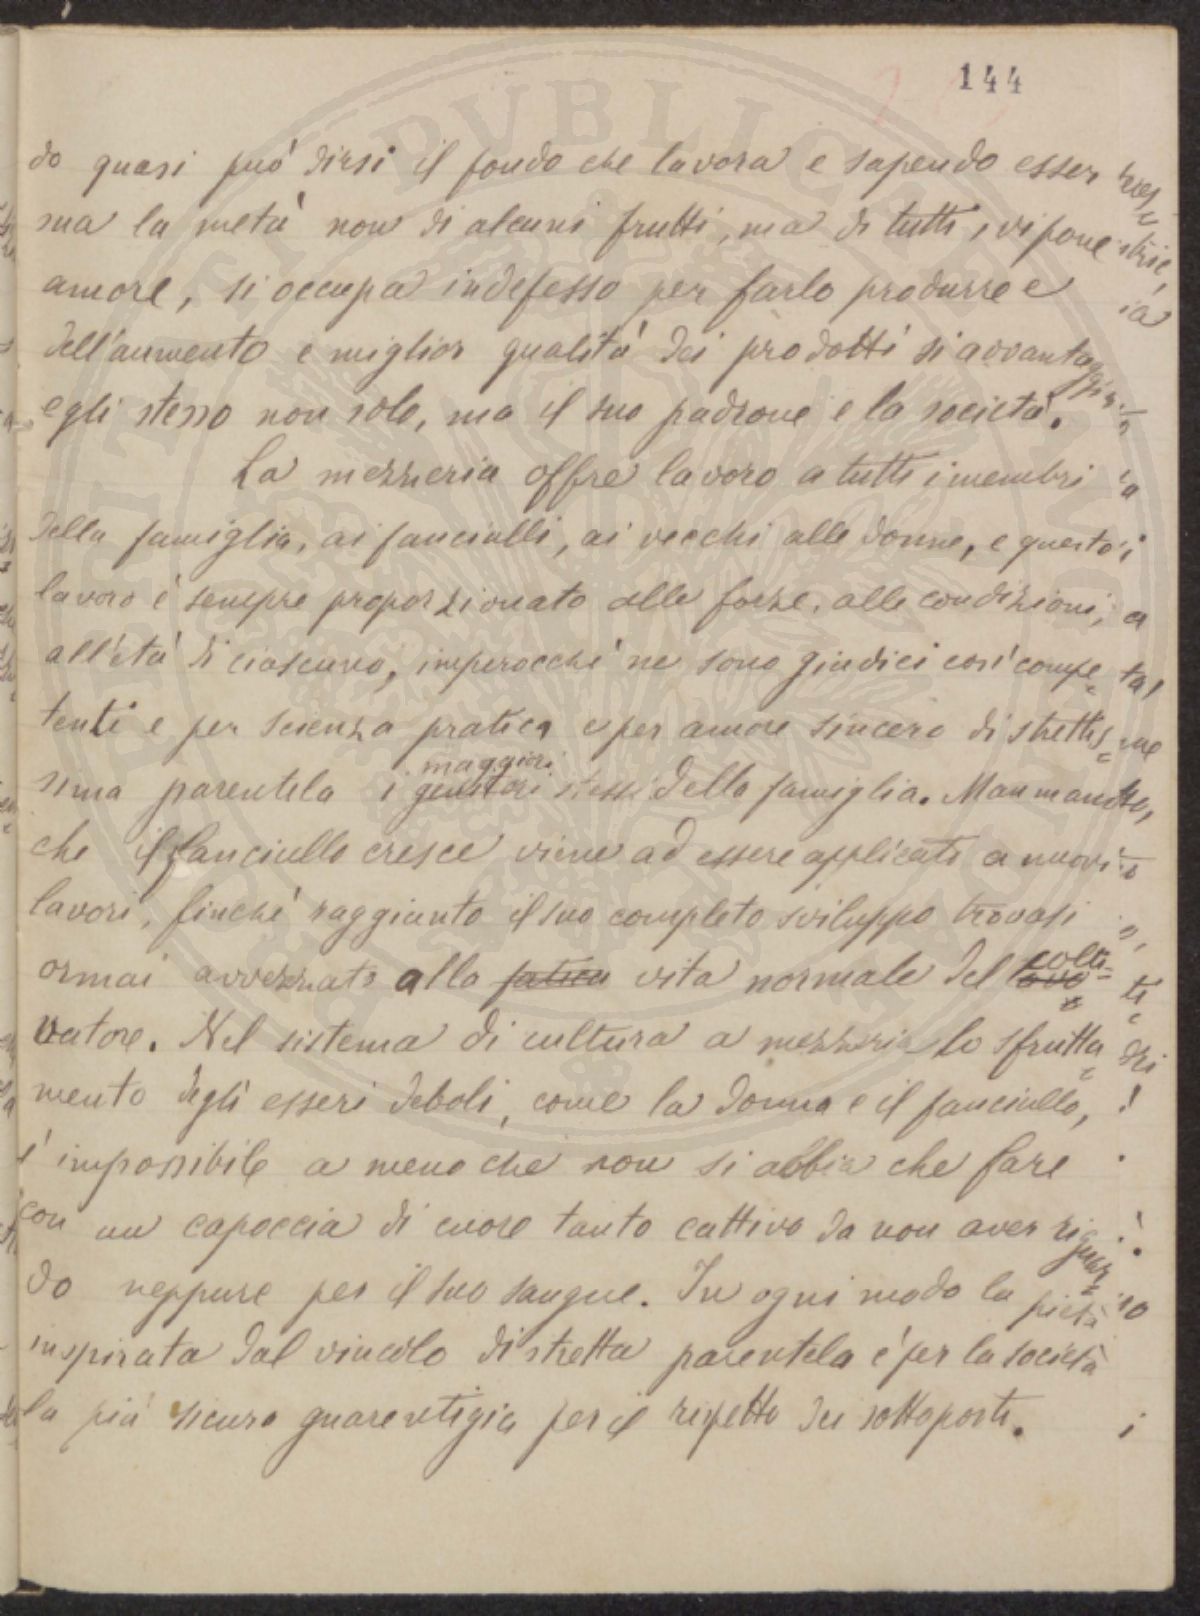 144
do quasi può dirsi il fondo che lavora e sapendo esser
sua la metà non di alcuni frutti, ma di tutti, vi pone
amore, si occupa indefesso per farlo produrre e
dell'aumento e miglior qualità dei prodotti si avvantaggia
egli stesso non solo, ma il suo padrone e la società.
La mezzeria offre lavoro a tutti i membri
della famiglia, ai fanciulli, ai vecchi alle donne, e questo
lavoro è sempre proporzionato alle forze, alle condizioni,
all'età di ciascuno, imperocchè ne sono giudici così compe=
tenti e per scienza pratica e per amore sincero di strettis=
sima parentela i genitori maggiori stessi della famiglia. Man mano
che il fanciullo cresce viene ad essere applicato a nuovi
lavori, finchè raggiunto il suo completo sviluppo trovasi
ormai avvezzato alla fatica vita normale del colti=
vatore. Nel sistema di cultura a mezzeria lo sfrutta=
mento degli esseri deboli, come la donna e il fanciullo,
è impossibile a meno che non si abbia che fare
con un capoccia di cuore tanto cattivo da non aver riguar=
do neppure per il suo sangue. In ogni modo la pietà
inspirata dal vincolo di stretta parentela è per la società
la più sicura guarentigia per il rispetto dei sottoposti.